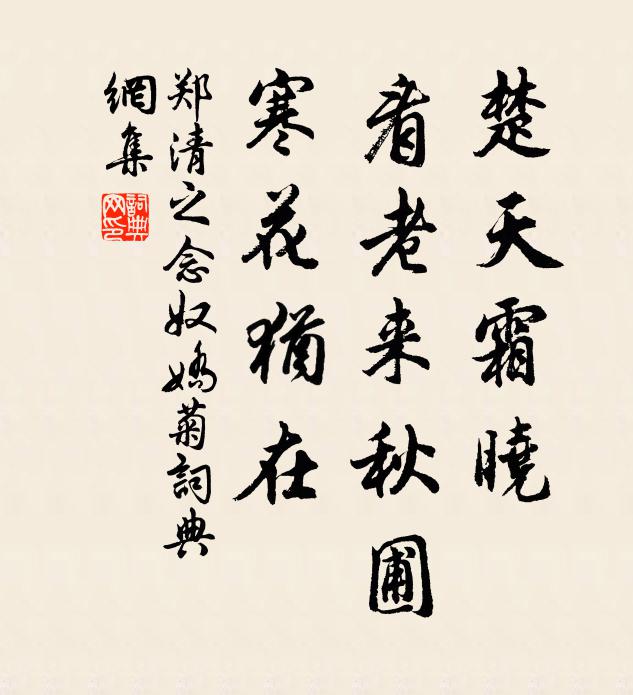 楚天霜曉
看老来秋圃
寒花猶在
郑清之念奴嬌菊詞典
網集
詞典网印